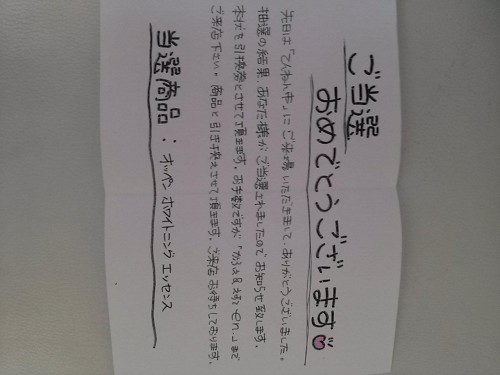 ご当選
おめでとうございます
先日は「てんねん市」にご来場いただきまして、ありがとうございました。
抽選の結果、あなた様がご当選されましたので お知らせ致します。
本状を引換券とさせて頂きます。お手数ですが「から&まで」まで
ご来店下さい。商品と引き換えさせて頂きます。ご来店お待ちしております。
当選商品：オッペン ホワイトニング エッセンス